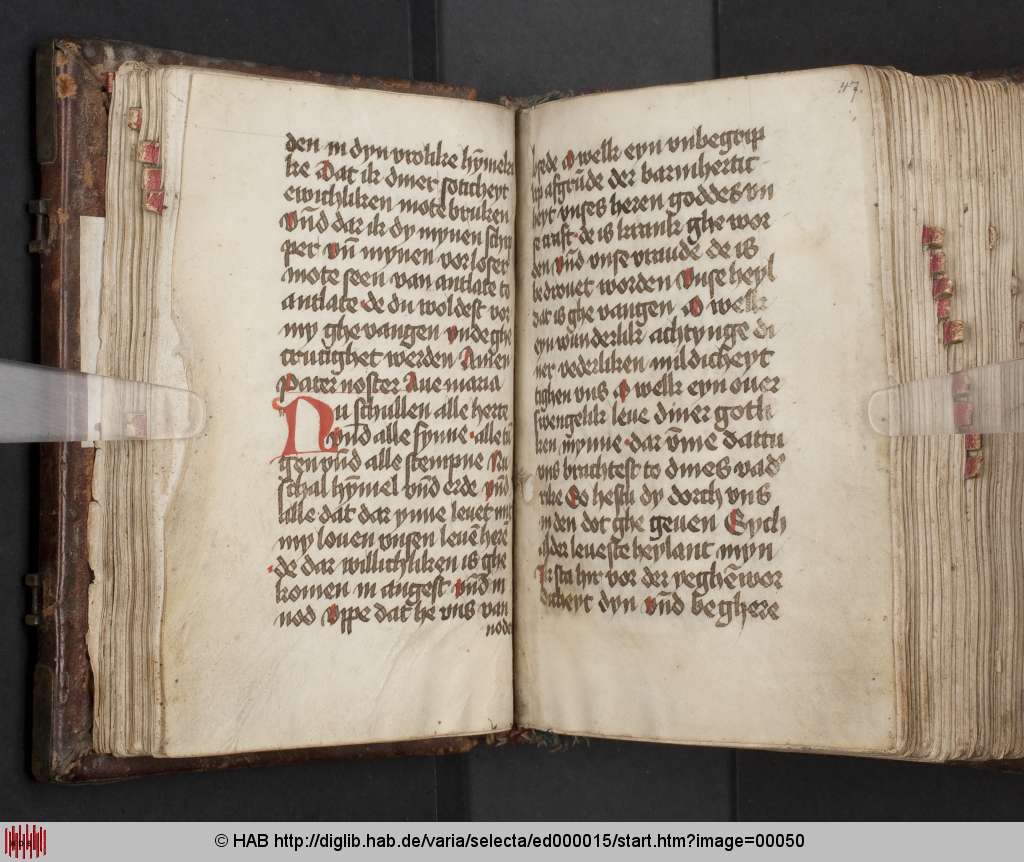 den in dyn vrolike hÿmelri
ke Dat ik diner soticheyt
ewichliken mote bruken
Vn̄d dar ik dy mynen schip
per vn̄ mynen vorloser
mote seen van antlate to
antlate de du woldest vor
my ghevangen vnde ghe
crucighet werden Amen
Pater noster Ave maria
Nu schullen alle herte
vn̄d alle synne alle tū
gen vn̄d alle stempne Nu
schal hÿmel vn̄d erde vn̄d
alle dat dar ynne levet mit
my loven vnsen levē herē
de dar willichliken is ghe
komen in angest vn̄d in
nod Vppe dat he vns van
node
47.
hede O welk eyn vnbegrip
lik afgrūde der barmhertic
heyt vnses heren goddes vn
se trost de is krank ghe wor
den vn̄d vnse vraude de is
bedrovet worden Vnse heyl
dat is ghe vangen O welk
eyn wūnderlik achtynge di
ner vederliken mildicheyt
tighen vns O welk eyn over
swengelik leve diner gotli
ken mÿnne dar v̄me dattu
vns brachtest to dines vad'
rike So hestu dy dorch vns
in den dot ghe geven Eych
alder leveste heylant myn
Ik sta hir vor der yeghēwor
dicheyt dyn vn̄d beghere
© HAB http://diglib.hab.de/varia/selecta/ed000015/start.htm?image=00050